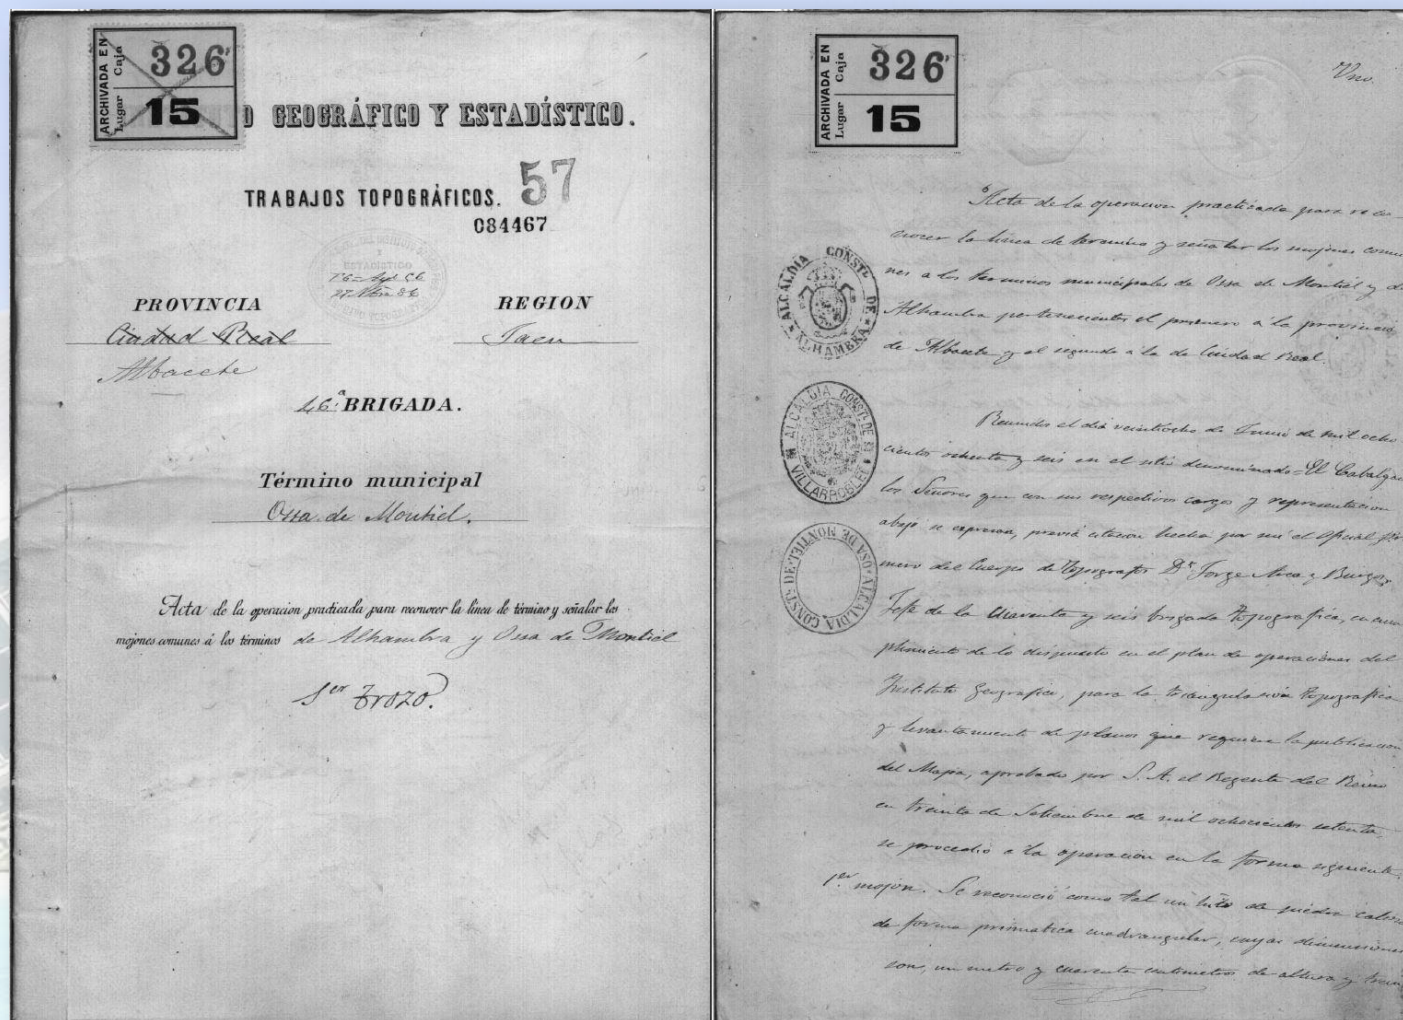 ARCHIVADA EN
Lugar Caja
326
15
O GEOGRÁFICO Y ESTADÍSTICO.
TRABAJOS TOPOGRÁFICOS.
57
084467
ESTADISTICO
PROVINCIA
Ciudad Real
Albacete
REGION
Jaen
46.ª BRIGADA.
Término municipal
Ossa de Montiel.
Acta de la operacion practicada para reconocer la línea de término y señalar los
mojones comunes á los términos de Alhambra y Ossa de Montiel
1er Trozo.
ARCHIVADA EN
Lugar Caja
326
15
Uno.
Acta de la operacion practicada para reco-
nocer la línea de termino y señalar los mojones comu
nes a los terminos municipales de Ossa de Montiel y de
Alhambra pertenecientes el primero á la provincia
de Albacete y el segundo á la de Ciudad Real.
ALCALDÍA CONSTL. DE ALHAMBRA
ALCALDIA CONSTL. DE VILLARROBLEDO
ALCALDIA CONSTL. DE OSA DE MONTIEL
Reunidos el dia veintiocho de Junio de mil ocho
cientos ochenta y seis en el sitio denominado = El Cabalga
los Señores que con sus respectivos cargos y representacion
abajo se expresan, previa citacion hecha por mi el Oficial pri
mero del Cuerpo de Topografos Dn. Jorge y Burgos
Jefe de la cuarenta y seis brigada topografica, en cum
plimiento de lo dispuesto en el plan de operaciones del
Instituto Geografico, para la triangulacion topografica
y levantamiento de planos que requiere la publicacion
del Mapa, aprobado por S. A. el Regente del Reino
en treinta de Setiembre de mil ochocientos setenta,
se procedió a la operacion en la forma siguiente.
1er mojon. Se reconoció como tal un hito de piedra caliza
de forma prismatica cuadrangular, cuyas dimensiones
son, un metro y cuarenta centimetros de altura y